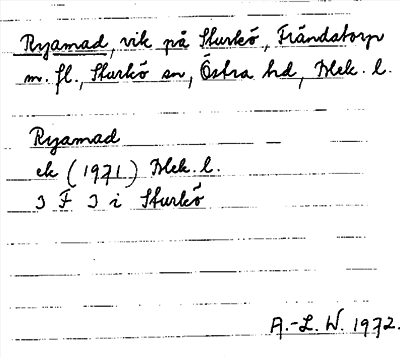 Ryamad, vik på Sturkö, Frändatorp
m. fl., Sturkö sn, Östra hd, Blek. l.
Ryamad
ek (1971) Blek. l.
3 F 3 i Sturkö
A.-L. W. 1972.